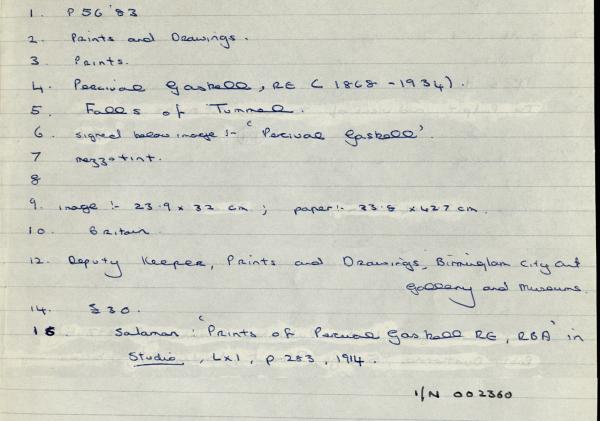 1. P 56 '83
2. Prints and Drawings.
3 Prints.
4. Percival Gaskell, RE (1868-1934).
5. Falls of Tummel.
6 signed below image :- 'Percival Gaskell'.
7 mezzotint.
8
9. image :- 23.9 x 32 cm ; paper :- 33.8 x 42.7 cm.
10. Britain
12. Deputy Keeper, Prints and Drawings, Birmingham City Art
Gallery and Museums.
14. £30.
15 Salaman : 'Prints of Percival Gaskell RE, RBA' in
Studio, LXI, p. 283, 1914.
1/N 002360